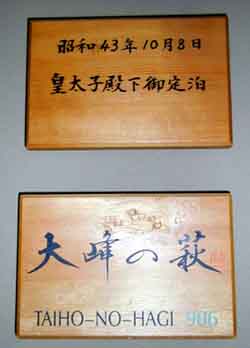 昭和43年10月8日
皇太子殿下御定泊
大峰の萩
TAIHO-NO-HAGI 906